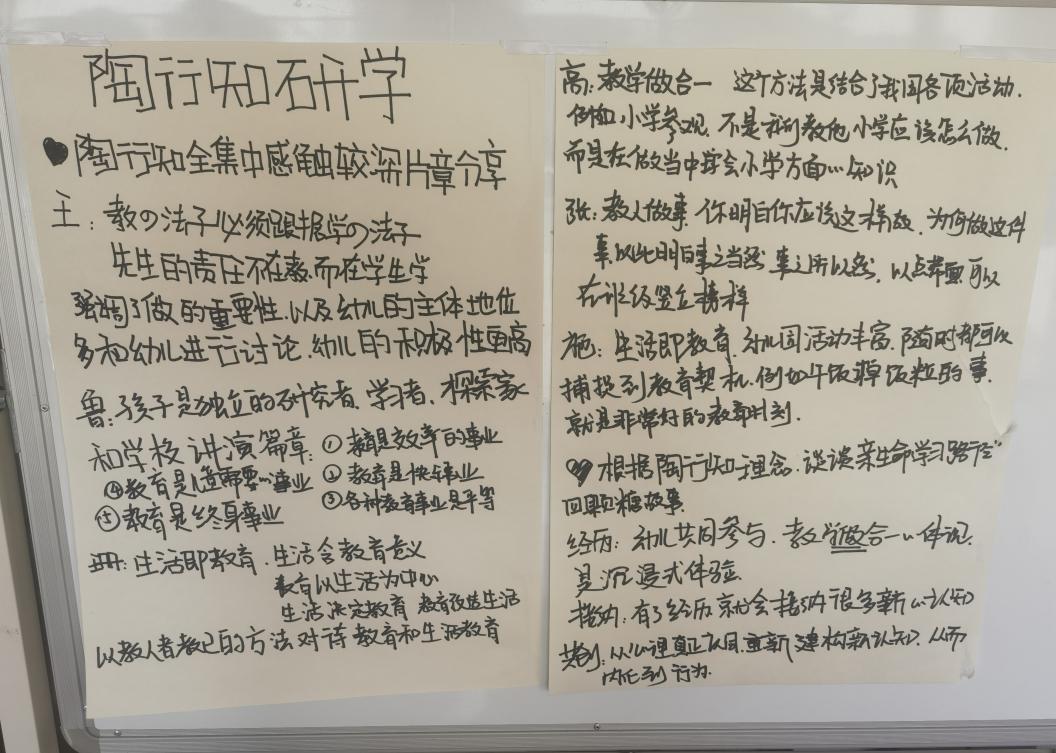 陶行知研学
陶行知全集中感触较深片章分享
王：教の法子必须跟据学の法子
先生的责任不在教.而在学生学
强调了做的重要性.以及幼儿的主体地位
多和幼儿进行讨论.幼儿的积极性更高
鲁：孩子是独立的研究者、学习者、探索家
和学校讲演篇章：①教育是效率的事业
④教育是 需要 事业 ②教育是快乐事业
⑤教育是终身事业 ③各种教育事业是平等
：生活即教育.生活含教育意义
教育以生活为中心
生活决定教育 教育改造生活
以教人者教己的方法对待教育和生活教育
高：教学做合一 这个方法是结合了我园各项活动.
例如小学参观.不是我们教他小学应该怎么做.
而是在做当中学会小学方面 知识
张：教人做事.你明白你应该这样做.为何做这件
事以此明白事之当然.事之所以然.以点带面可以
在 级竖立榜样
施：生活即教育.幼儿园活动丰富.随时都可以
捕捉到教育契机.例如午饭掉饭粒的事.
就是非常好的教育时刻.
根据陶行知理念.谈谈亲生命学习路径
回顾 糖故事.
经历：幼儿共同参与.教学做合一 体现.
是沉浸式体验.
接纳：有了经历就会接纳很多新 认知
类别：从心理真正认同.重新建构新认知.从而
内化到行为.